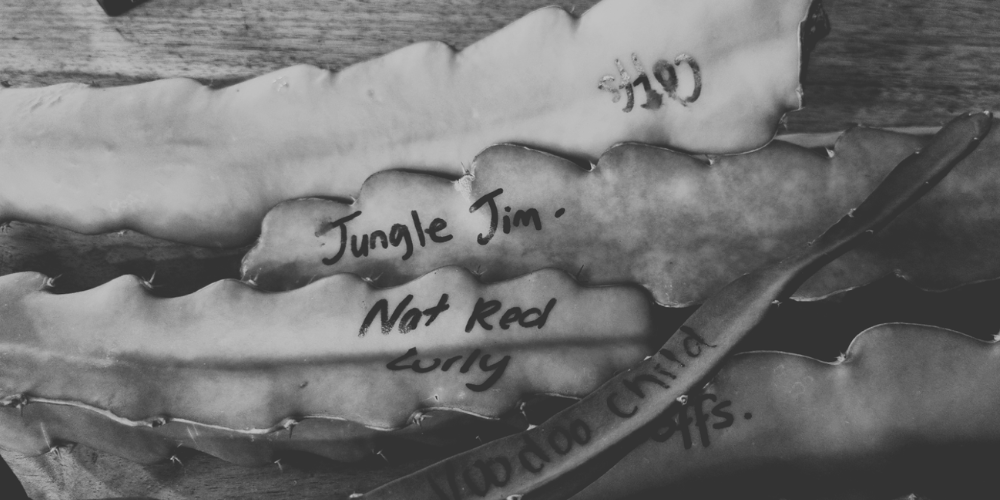 Jungle Jim.
Nat Red
Curly
Voodoo Child